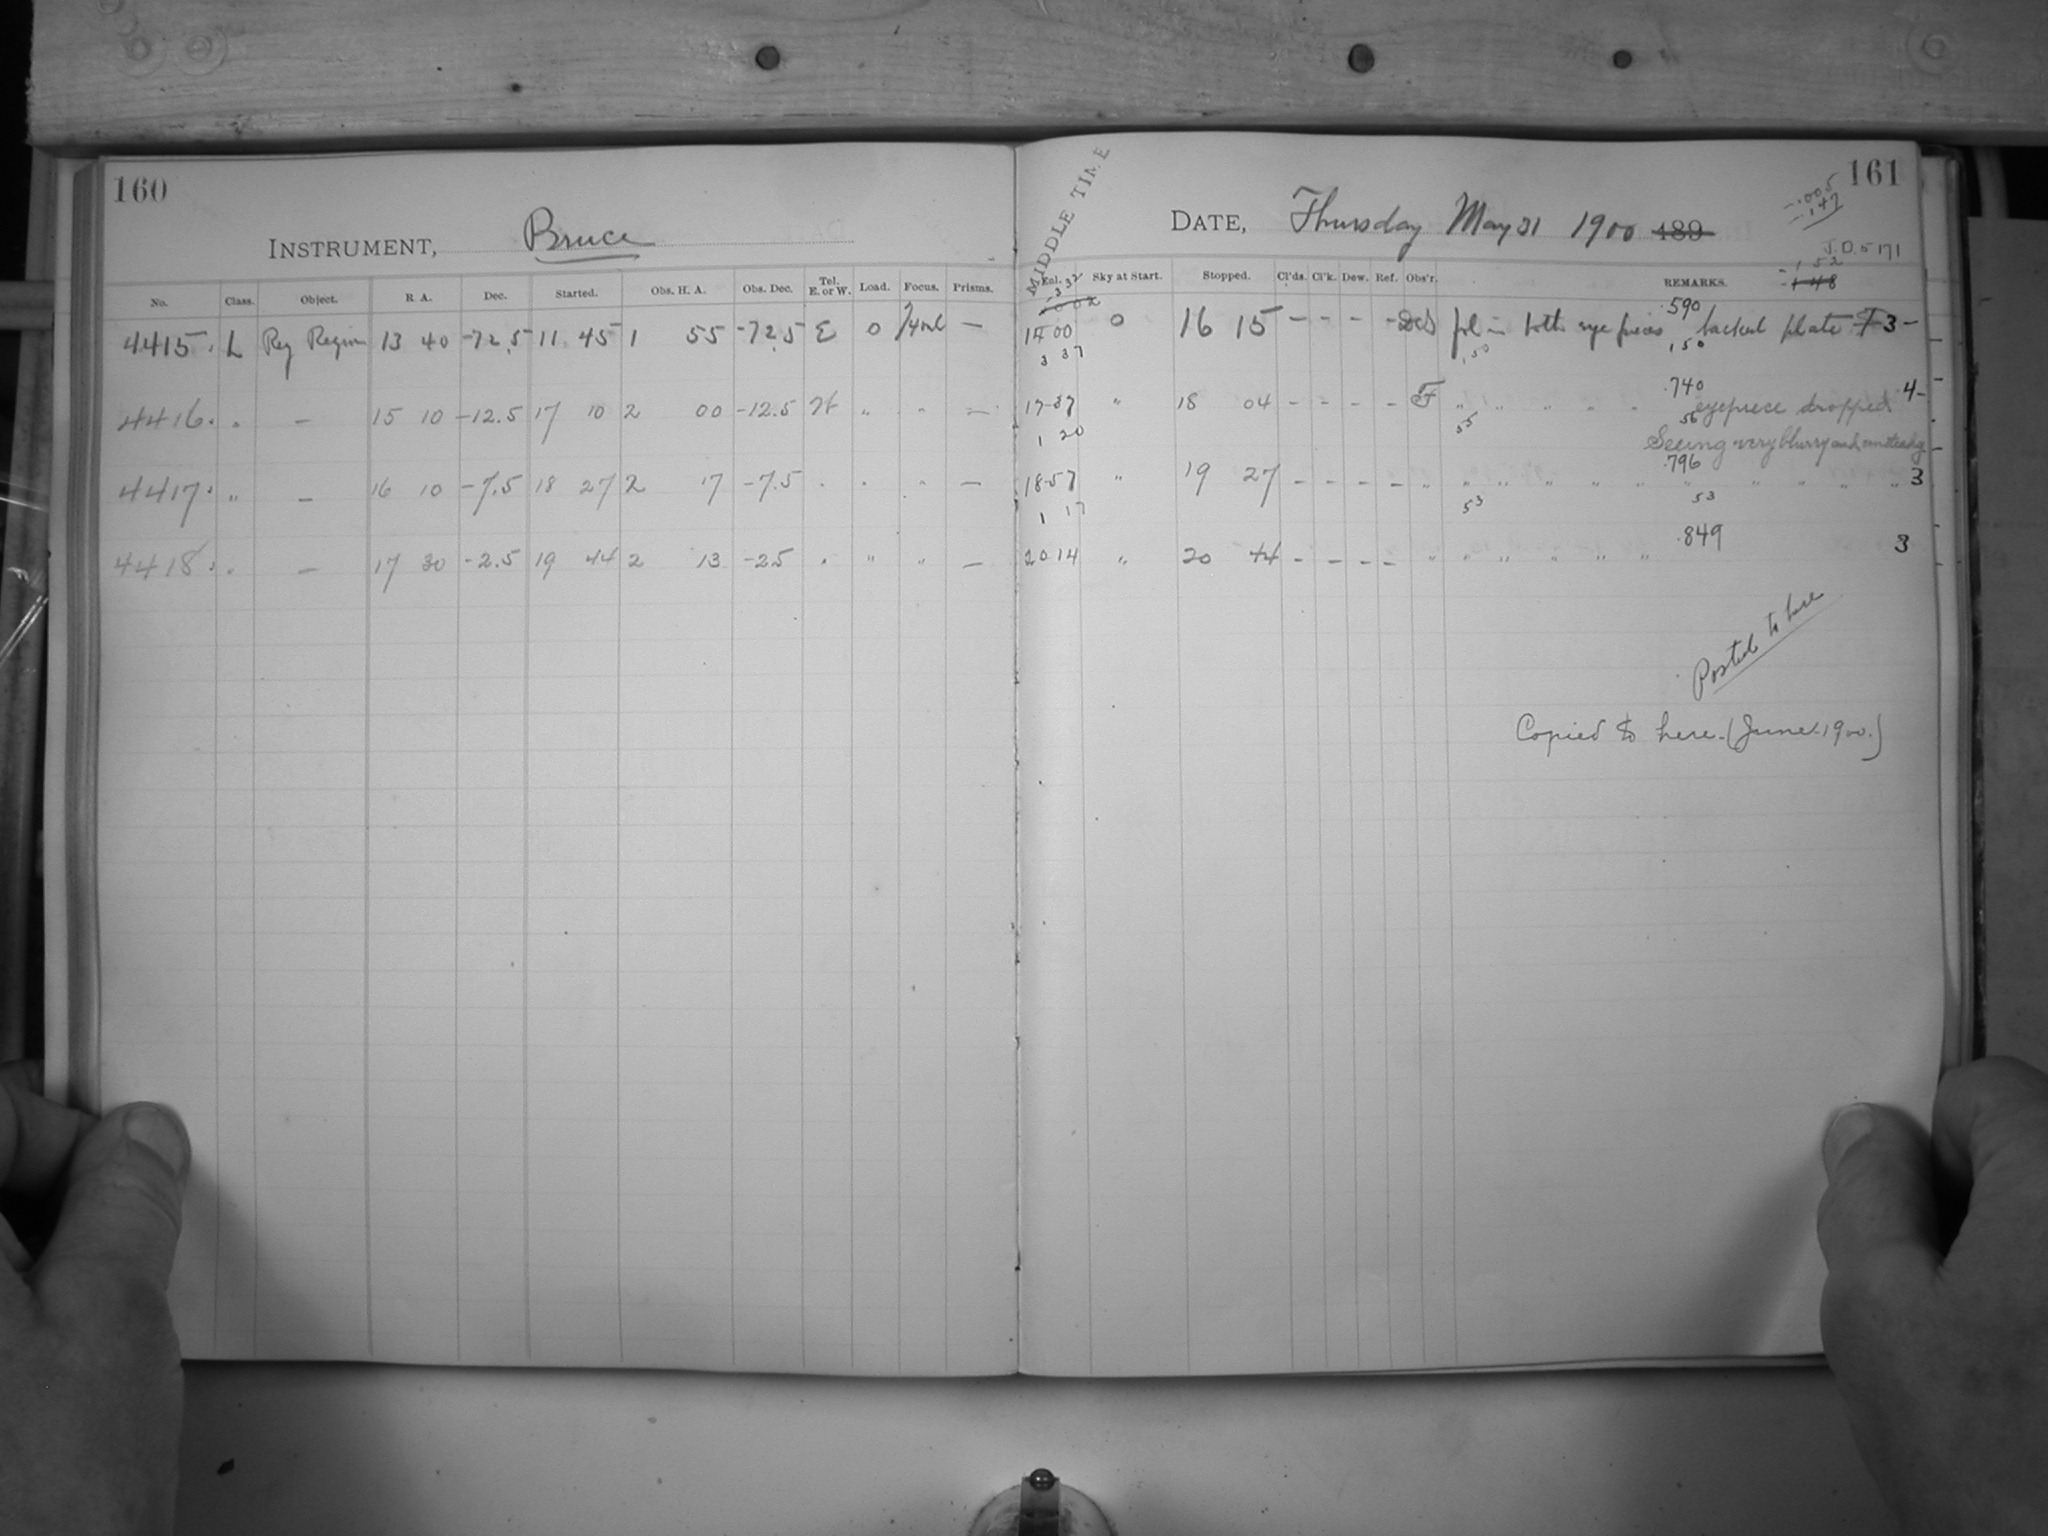 160
INSTRUMENT, Bruce
No. Class. Object. R. A. Dec. Started. Obs. H. A. Obs. Dec. Tel. E. or W. Load. Focus. Prisms.
4415. L Reg Region 13 40 -72.5 11 45 1 55 -72.5 E 0 —
4416. " — 15 10 -12.5 17 10 2 00 -12.5 W " " —
4417. " — 16 10 -7.5 18 27 2 17 -7.5 " " " —
4418. " — 17 30 -2.5 19 44 2 13 -2.5 " " " —
MIDDLE TIME
161
-.005
-.147
DATE, Thursday May 31 1900 189
J.D. 5171
-152
-148
Exl. Sky at Start. Stopped. Cl'ds. Cl'k. Dew. Ref. Obs'r. REMARKS.
-332
-002
.590
14 00 0 16 15 - - - - fol in both eye pieces backed plate F 3-
3 37 150 150
.740
17-37 " 18 04 - - - - F " " " " " eyepiece dropped 4-
1 20 55 56
Seeing very blurry and unsteady
.796
18-57 " 19 27 - - - - " " " " " " " " " " " 3
1 17 53 53
.849
20 14 " 20 44 - - - - " " " " " " 3
Posted to here
Copied to here. (June 1900.)